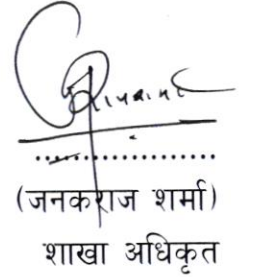 ....................
(जनकराज शर्मा)
शाखा अधिकृत